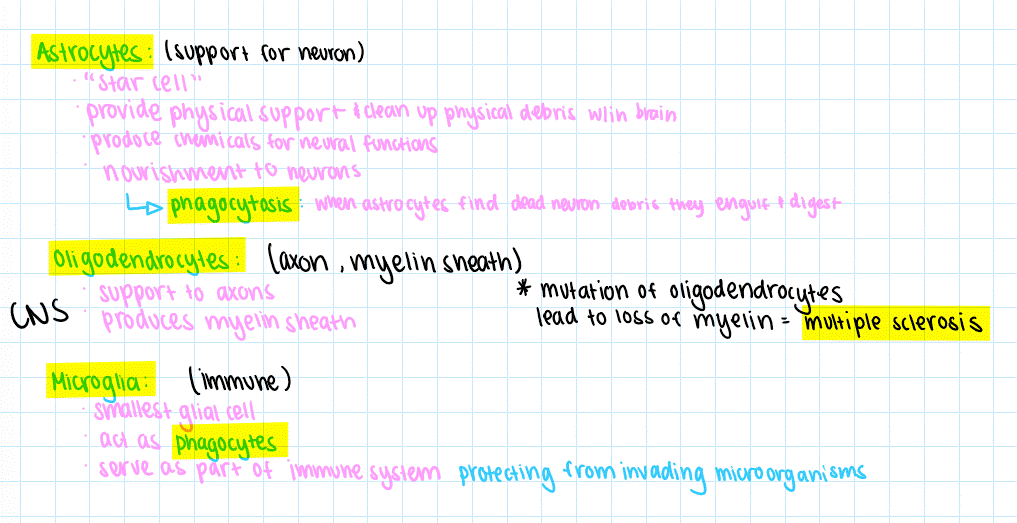 Astrocytes: (support for neuron)
· "star cell"
· provide physical support & clean up physical debris w/in brain
· produce chemicals for neural functions
· nourishment to neurons
↳ phagocytosis: when astrocytes find dead neuron debris they engulf & digest
Oligodendrocytes: (axon, myelin sheath)
· support to axons
* mutation of oligodendrocytes
CNS
· produces myelin sheath
lead to loss of myelin = multiple sclerosis
Microglia: (immune)
· smallest glial cell
· act as phagocytes
· serve as part of immune system protecting from invading microorganisms